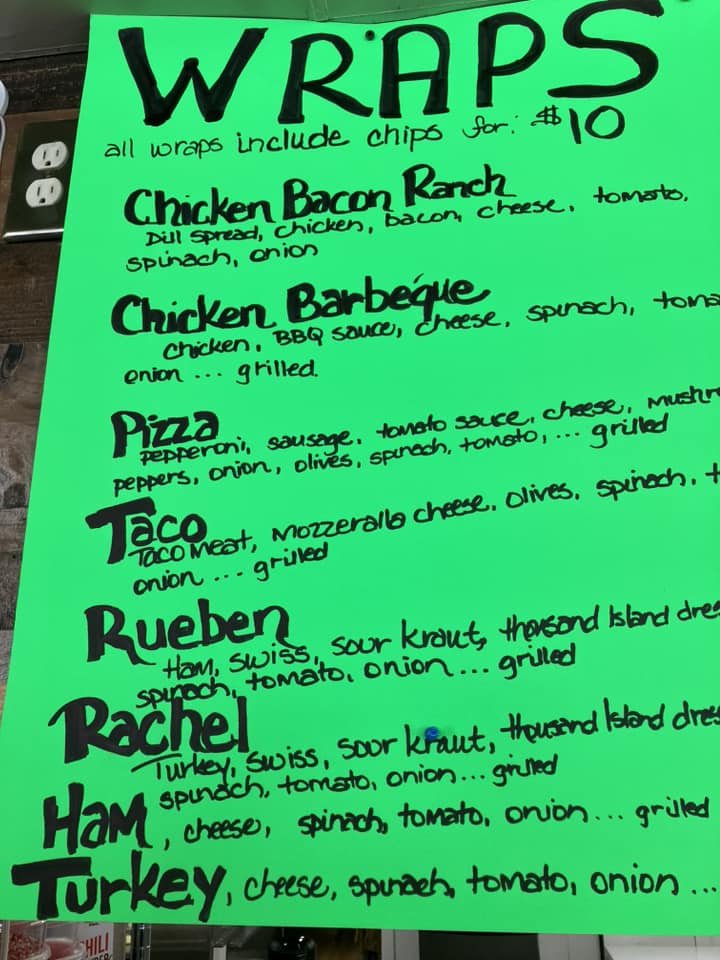 WRAPS
all wraps include chips for: $10
Chicken Bacon Ranch
Dill spread, chicken, bacon, cheese, tomato,
spinach, onion
Chicken Barbeque
chicken, BBQ sauce, cheese, spinach, toma
onion ... grilled.
Pizza
pepperoni, sausage, tomato sauce, cheese, mushr
peppers, onion, olives, spinach, tomato, ... grilled
Taco
Taco meat, mozzeralla cheese, olives, spinach, t
onion ... grilled
Rueben
Ham, swiss, sour kraut, thousand Island dres
spinach, tomato, onion ... grilled
Rachel
Turkey, swiss, sour kraut, thousand Island dres
spinach, tomato, onion ... grilled
Ham, cheese, spinach, tomato, onion ... grilled
Turkey, cheese, spinach, tomato, onion ...